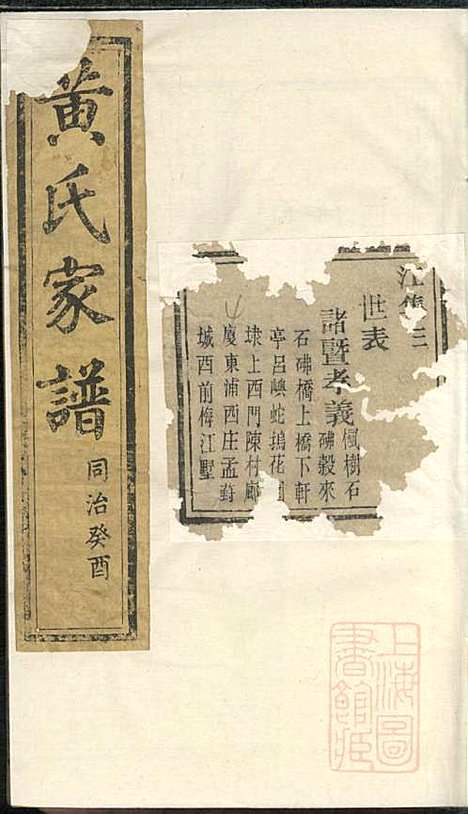 黄氏家譜
同治癸酉
江集三
世表
諸暨孝義
樹石
砩穀來
石砩橋上橋下軒
亭呂嶴蛇塢花
埭上西門陳村廊
廈東浦西庄孟葑
城西前梅江墅
上海圖
書館藏